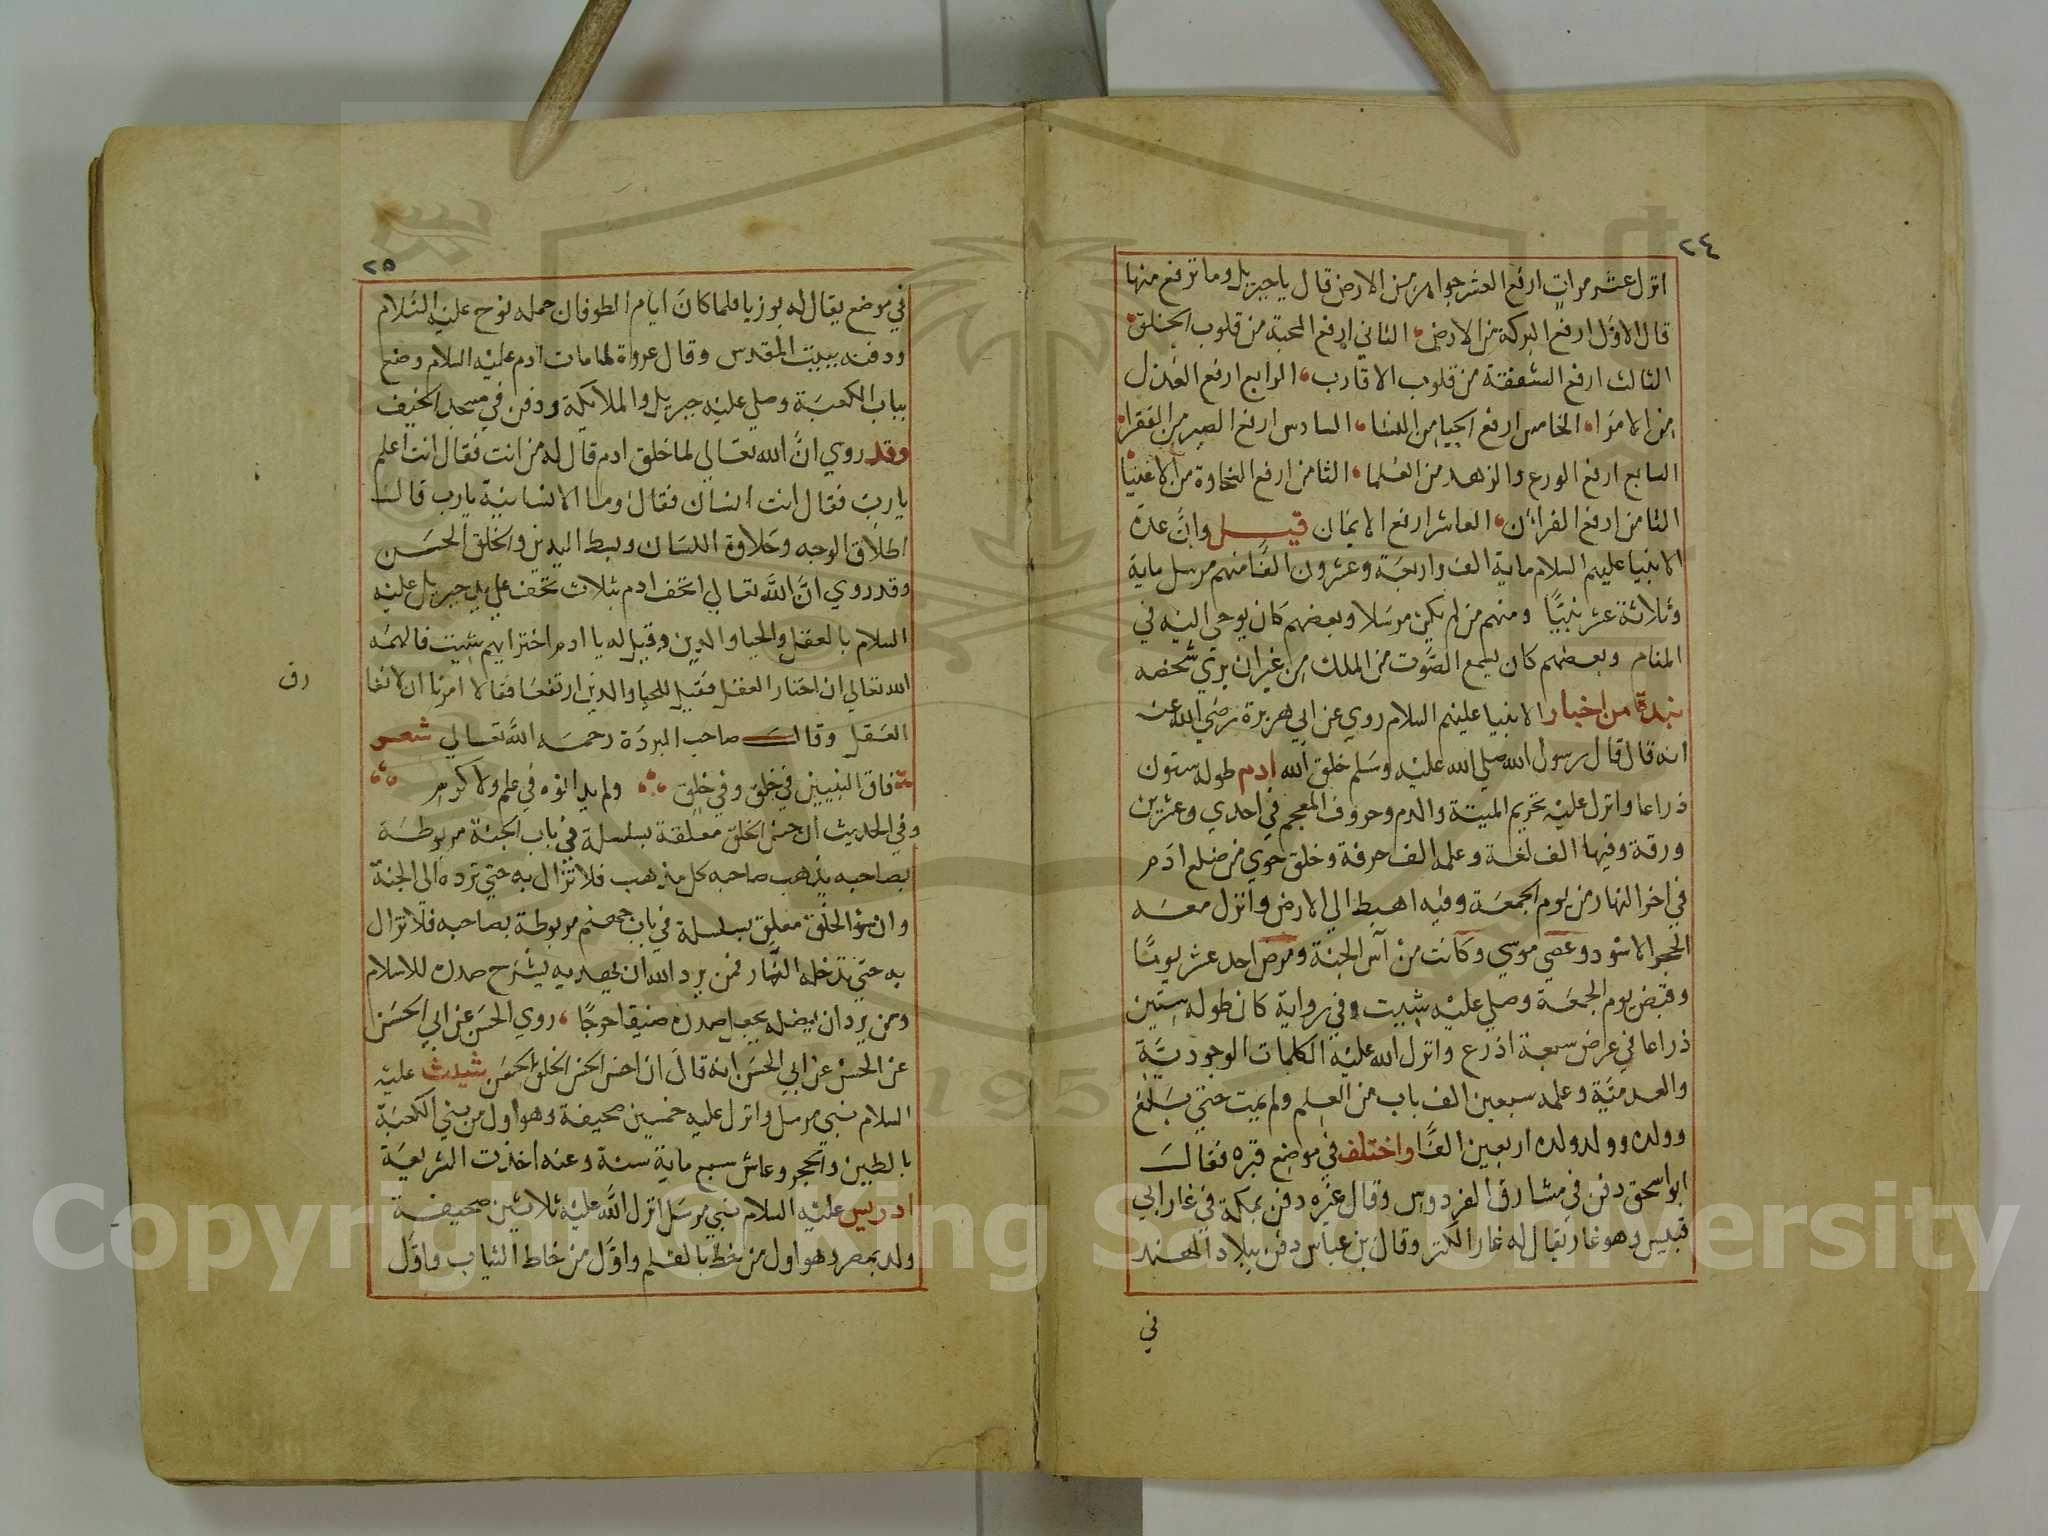 ٢٤
انزل عشر مرات ارفع العشر جواهر من الارض قال يا جبريل وما ترفع منها
قال الاول ارفع البركة من الارض، الثاني ارفع المحبة من قلوب الخلق،
الثالث ارفع الشفقة من قلوب الاقارب، الرابع ارفع العدل
من الامرا، الخامس ارفع الحيا من النسا، السادس ارفع الصبر من الفقرا،
السابع ارفع الورع والزهد من العلما، الثامن ارفع السخاوة من الاغنيا
الثامن ارفع القرآن، العاشر ارفع الايمان قيل وانَّ عدة
الانبيا عليهم السلام ماية الف واربعة وعشرون الفًا منهم مرسل ماية
وثلاثة عشر نبيًّا ومنهم من لم يكن مرسلا وبعضهم كان يوحى اليه في
المنام وبعضهم كان يسمع الصوت من الملك من غير ان يرى شخصه
نبذة من اخبار الانبيا عليهم السلام روي عن ابي هريرة رضي الله عنه
انه قال قال رسول الله صلي الله عليه وسلم خلق الله ادم طوله ستون
ذراعا وانزل عليه تحريم الميتة والدم وحروف المعجم في احدي وعشرين
ورقة وفيها الف لغة وعلمه الف حرفة وخلق حوي من ضلع ادم
في اخر النهار من يوم الجمعة وفيه اهبط الي الارض وانزل معه
الحجر الاسود وعصي موسي وكانت من آس الجنة ومرض احد عشر يومًا
وقبض يوم الجمعة وصلي عليه شيث وفي رواية كان طوله ستين
ذراعا في عرض سبعة اذرع وانزل الله عليه الكلمات الوجوديَّة
والعدميَّة وعلمه سبعين الف باب من العلم ولم يمت حتي بلغ
وولده وولد ولده اربعين الفًا واختلف في موضع قبره فقال
ابو اسحق دفن في مشارق الفردوس وقال غيره دفن بمكة في غار ابي
قبيس وهو غار يقال له غار الكنز وقال بن عباس دفن ببلاد الهند
في
٢٥
في موضع يقال له بوزيا فلما كان ايام الطوفان حمله نوح عليه السلام
ودفنه ببيت المقدس وقال عروة لما مات ادم عليه السلام وضع
بباب الكعبة وصلي عليه جبريل والملايكة ودفن في مسجد الخيف
وقد روي انَّ الله تعالي لما خلق ادم قال له من انت فقال انت اعلم
يا رب فقال انت انسان فقال وما الانسانية يا رب قال
اطلاق الوجه وحلاوة اللسان وبسط اليدين والخلق الحسن
وقد روي انَّ اللّه تعالي اتحف ادم بثلاث تحف علي يد جبريل عليه
السلام بالعقل والحيا والدين وقيل له يا ادم اختر ايهم شيت فالهمه
الله تعالي ان اختار العقل فقيل للحيا والدين ارتفعا فقالا امرنا ان لا نفا
رق
العقل وقال صاحب البردة رحمه اللّه تعالي شعر
فاق النبيين في خلق وفي خلق ولم يدانوه في علم ولا كرم
وفي الحديث ان حسن الخلق معلقة بسلسلة في باب الجنة مربوطة
بصاحبه يذهب صاحبه كل مذهب فلا تزال به حتي ترده الي الجنة
وان سوٴ الخلق معلق بسلسلة في باب جهنم مربوطة بصاحبه فلا تزال
به حتي تدخله النار فمن يرد الله ان يهديه يشرح صدره للاسلام
ومن يرد ان يضله يجعل صدره ضيقا حرجًا، روي الحسن عن ابي الحسن
عن الحسن عن ابي الحسن انه قال ان احسن الحسن الخلق الحسن شيث عليه
السلام نبي مرسل وانزل عليه خمسين صحيفة وهو اول من بني الكعبة
بالطين والحجر وعاش سبع ماية سنة وعنه اخذت الشريعة
ادريس عليه السلام نبي مرسل انزل اللَّه عليه ثلاثين صحيفة
ولد بمصر وهو اول من خط بالقلم واوَّل من خاط الثياب واوَّل
Copyright © King Saud University
195